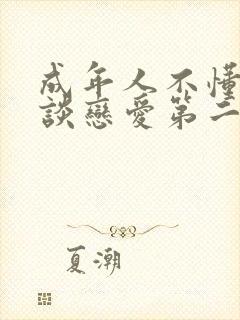 成年人不懂
談戀愛第二
夏潮